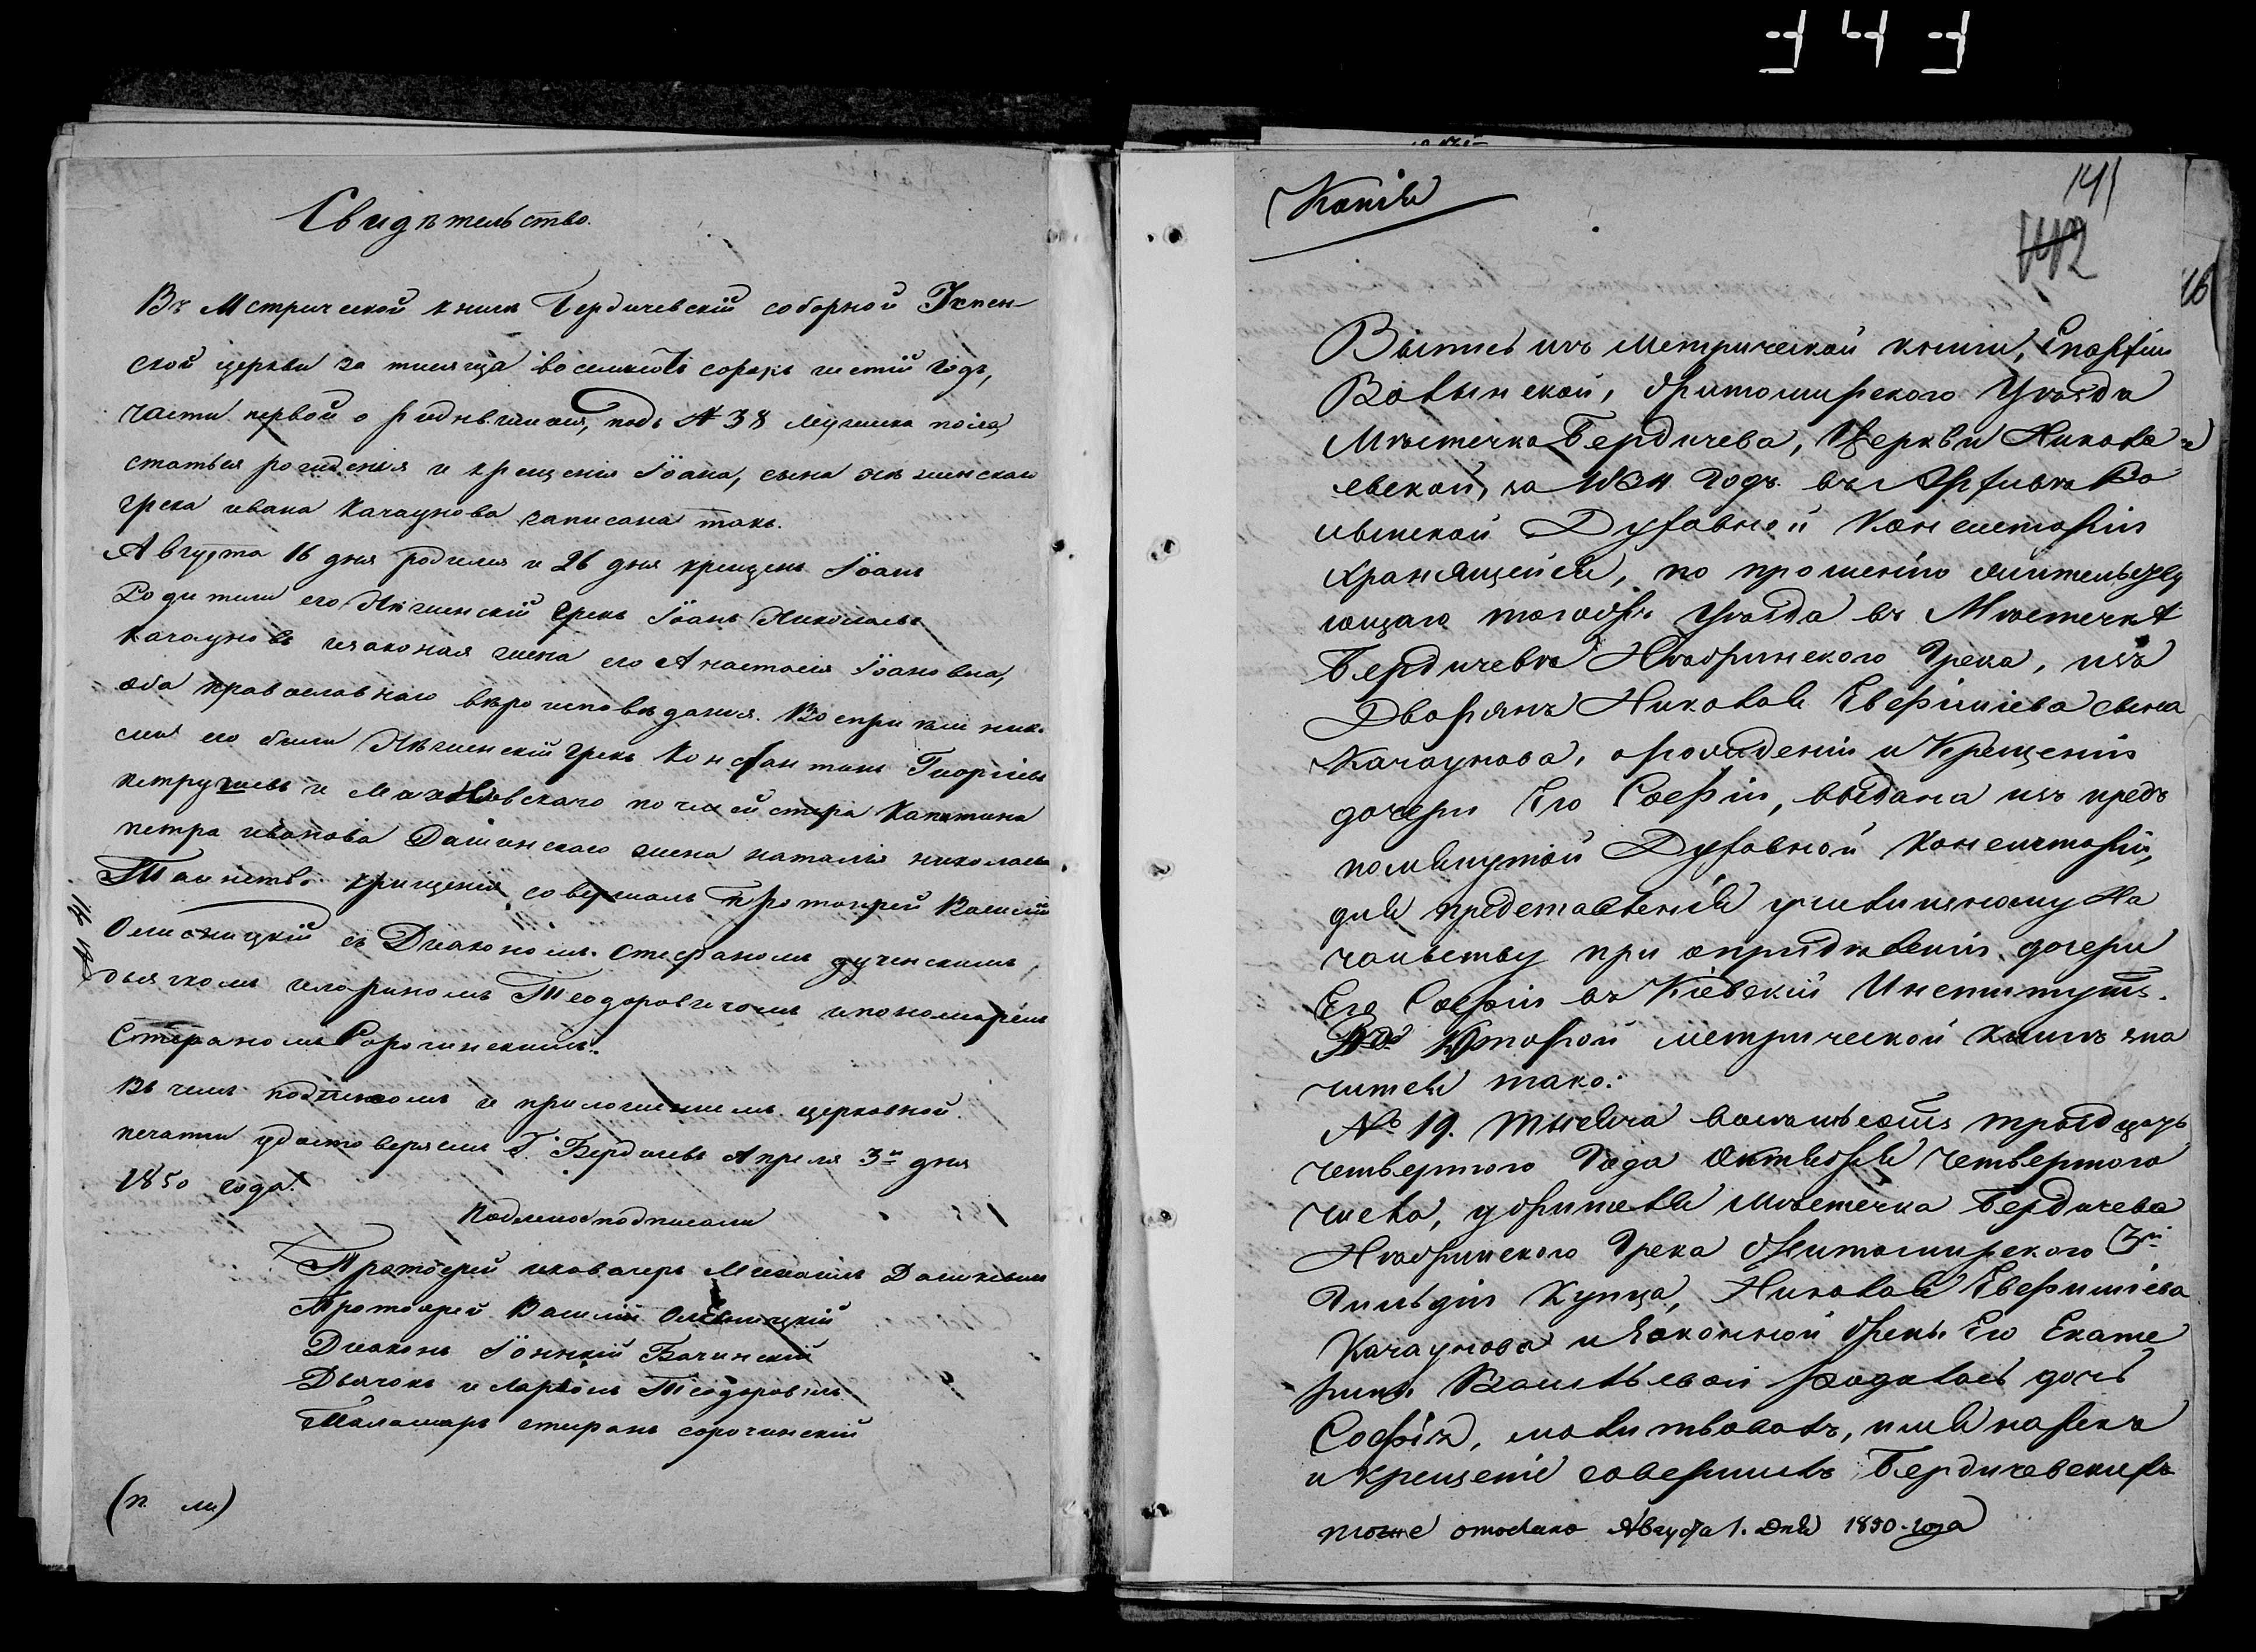 343
Свидѣтельство.
Въ Метрической книгѣ Бердичевскій соборной Успен-
ской церкви за тысяща восемьсотъ сорокъ шестій годъ,
части первой о родившихся, подъ № 38 мужеска пола,
статья рожденія и крещенія Іоана, сына нѣжинскаго
грека ивана Качаунова записана такъ.
Августа 16 дня родился и 26 дня крещенъ Іоанъ
Родители его Нѣжинскій грекъ Іоанъ Николаевъ
Качауновъ изаконая жена его Анастасія Іоановна,
оба православнаго вѣроисповѣданія. Воспріемник
ами его были Нѣжинскій грекъ Константинъ Георгіевъ
петрушевъ и Махновскаго почмейстера Капитана
петра иванова Дашинскаго жена наталія николаева
Таинство крищенія совершалъ протоіерей Василій
съ Диакономъ Стефаномъ
дьячкомъ иларіономъ Теодоровичомъ ипономаремъ
Стефаномъ Сорочинскимъ.
Въ чемъ подписомъ и приложениемъ церковной
печати удостоверяемъ Г. Бердичевъ Апреля 3го дня
1850 года.
Подленое подписали
Протоіерей икавалеръ Михаилъ Дашкевичъ
Протоіерей Василій
Диаконъ Бачинскій
Дьячокъ иларіонъ Теодоровичъ
Паламарь стефанъ сорочинскій
(п м)
Копія
141
142
16
Выпись изъ метрической книги, Епархіи
Волынской, Житомирского Уѣзда
Мѣстечка Бердичева, Церкви Никола-
евской, за 1834 годъ въ Архивѣ Во
лынской Духовной Консисторіи
хранящейся, по прошенію жительству
ющаго тогожъ Уѣзда въ Мѣстечкѣ
Бердичевѣ Нѣжинского Грека, изъ
Дворянъ Николая Евфиміева сына
Качаунова, орожденіи и Крещеніи
дочери Его Софіи, выдана изъ пред
помянутой Духовной Консисторіи,
для представленія училищному На
чальству при опридѣленіи дочери
Его Софіи въ Кіевскій Институтъ.
Въ Которой метрической книгѣ зна
чится тако:
№ 19. Тысяча восемьсотъ тридцать
четвертого Года Октября четвертого
числа, ужителя Мѣстечка Бердичева
Нѣжинского Грека Житомирского 3й
Гильдіи Купца, Николая Евфиміева
Качаунова и Законной Жены Его Екате
рины Васильевой родилась дочь
Софія, молитвовалъ, имя нарекъ
и крещеніе совершилъ Бердичевскихъ
тоже отослано Августа 1. дня 1850-года